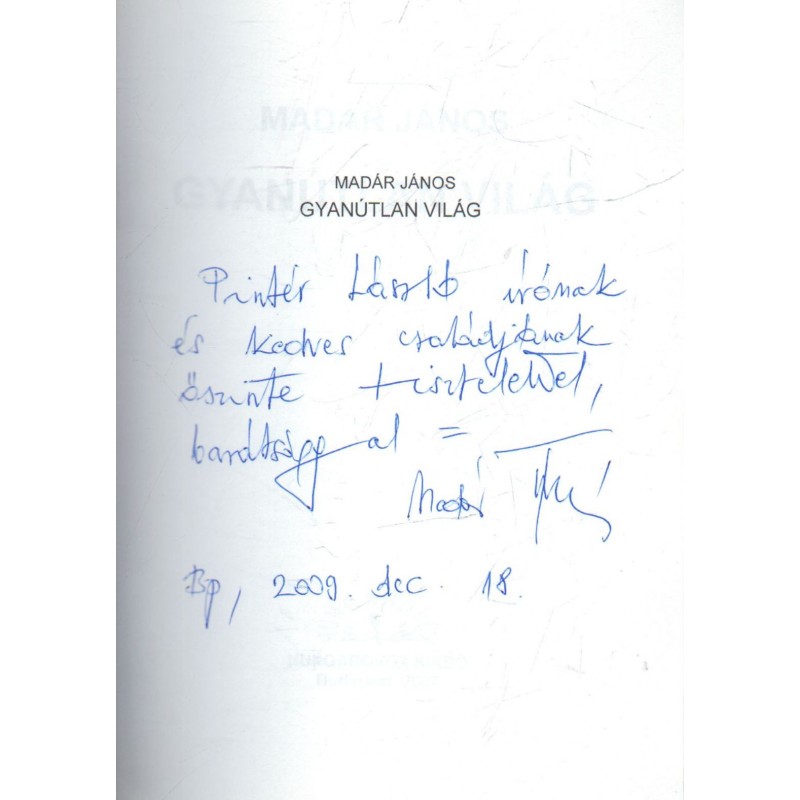 MADÁR JÁNOS
GYANÚTLAN VILÁG
Pintér László írónak
és kedves családjának
őszinte tisztelettel,
barátsággal =
Madár János
Bp, 2009. dec. 18.
MADÁR JÁNOS
GYANÚTLAN VILÁG